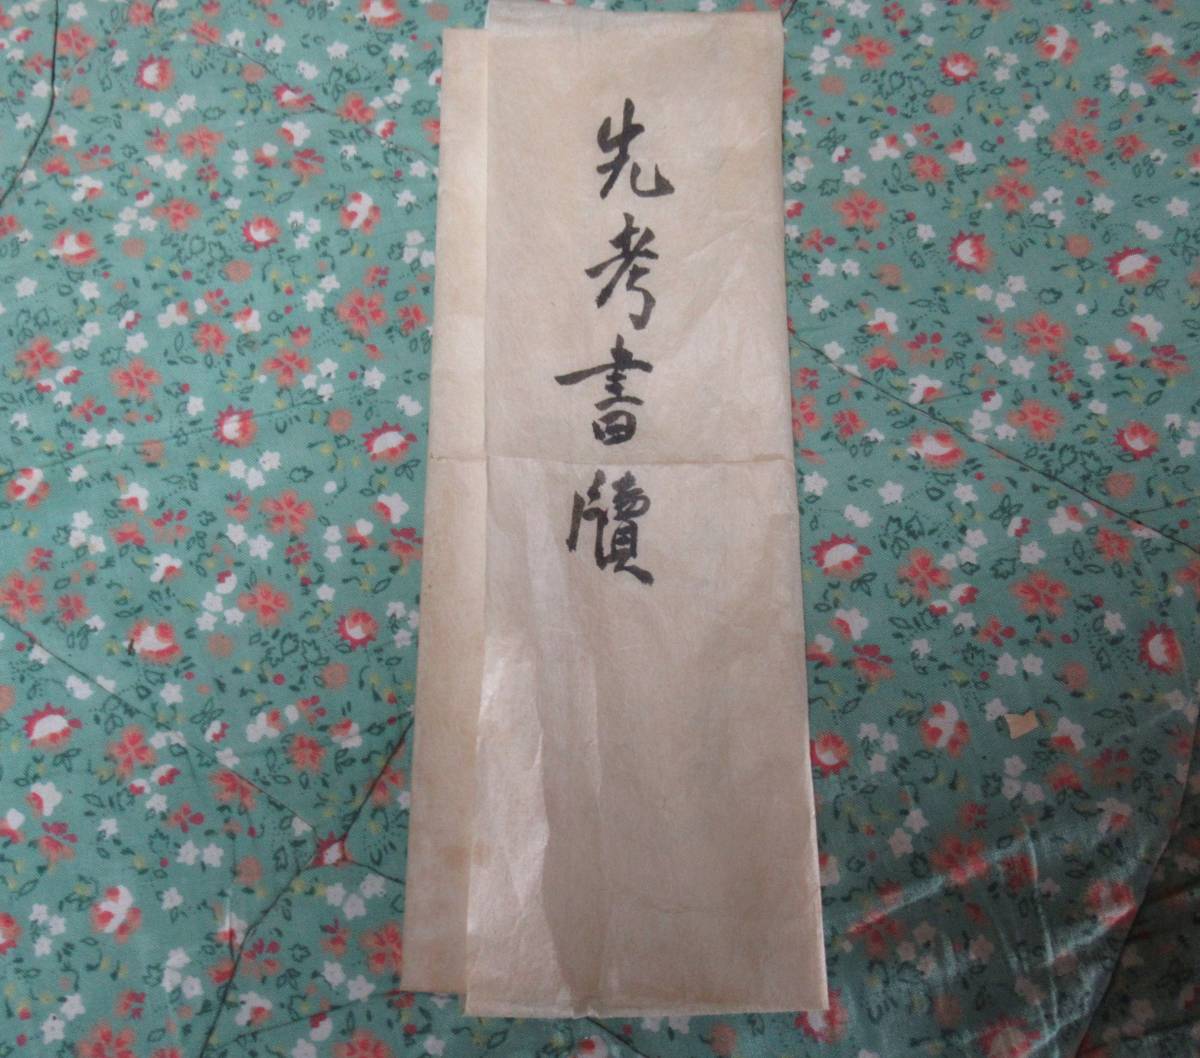 先考書牘